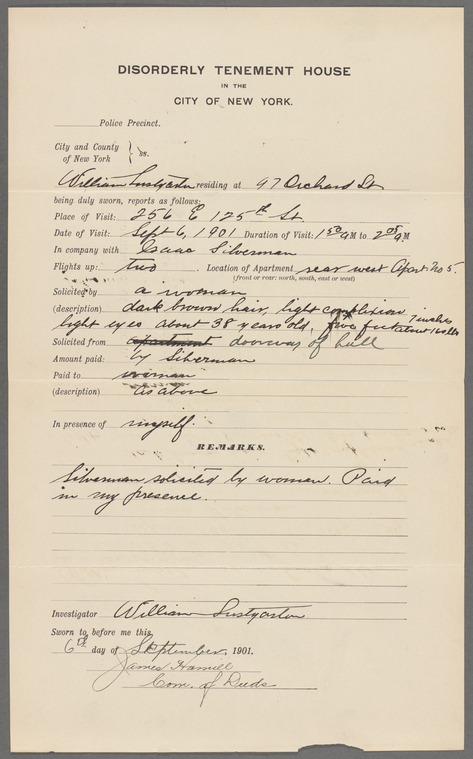 DISORDERLY TENEMENT HOUSE
IN THE
CITY OF NEW YORK.
Police Precinct.
City and County
of New York } ss.
William Lustgarten residing at 97 Orchard St
being duly sworn, reports as follows:
Place of Visit: 256 E 125th St.
Date of Visit: Sept 6, 1901 Duration of Visit: 1 50 AM to 2 05 AM
In company with Isaac Silverman
Flights up: two Location of Apartment rear west Apart No 5.
(front or rear: north, south, east or west)
Solicited by a woman
(description) dark brown hair, light complexion
light eyes about 38 years old, five feet 7 inches about
Solicited from apartment doorway of hall
Amount paid: by Silverman
Paid to woman
(description) as above
In presence of myself.
REMARKS.
Silverman solicited by woman. Paid
in my presence.
Investigator William Lustgarten
Sworn to before me this
6th day of September, 1901.
James Hamill
Com. of Deeds